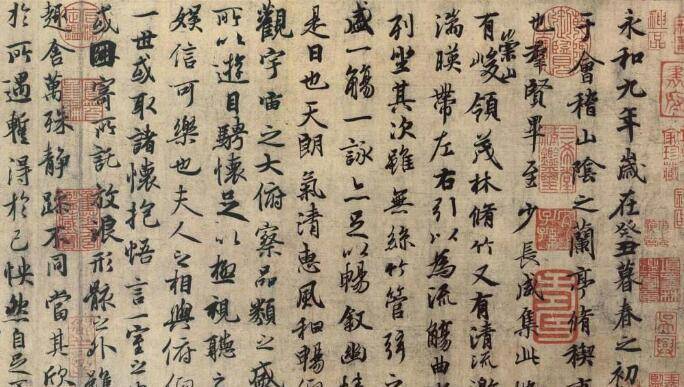 永和九年歲在癸丑暮春之初
于會稽山陰之蘭亭脩稧
也羣賢畢至少長咸集此
崇山
有峻領茂林脩竹又有清流激
湍暎帶左右引以為流觴曲
列坐其次雖無絲竹管弦之
盛一觴一詠亦足以暢敘幽情
是日也天朗氣清惠風和暢
觀宇宙之大俯察品類之盛
所以遊目騁懷足以極視聽之
娛信可樂也夫人之相與俯
一世或取諸懷抱悟言一室之
或因寄所託放浪形骸之外雖
趣舍萬殊靜躁不同當其欣
於所遇蹔得於己怏然自足